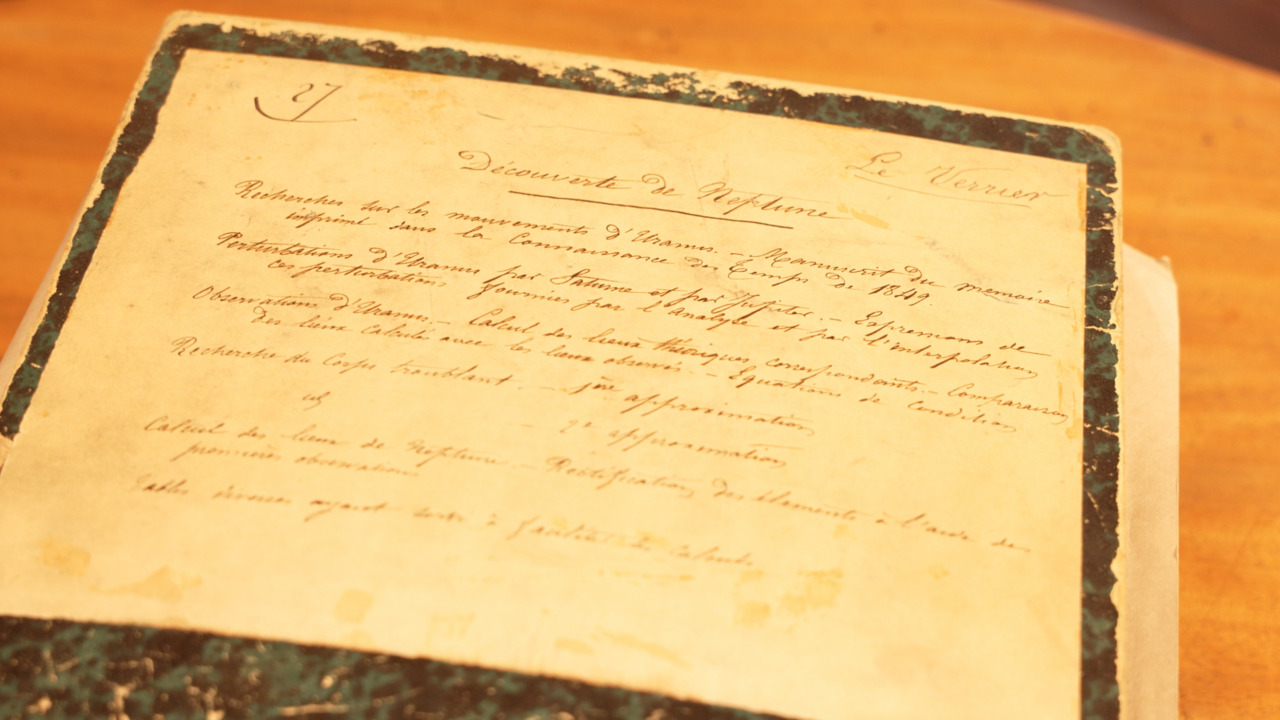 27
Le Verrier
Découverte de Neptune
Recherches sur les mouvements d'Uranus. — Manuscrit du mémoire
imprimé dans la Connaissance des Temps de 1849.
Perturbations d'Uranus par Saturne et par Jupiter. — Expressions de
ces perturbations fournies par l'analyse et par l'interpolation
Observations d'Uranus. — Calcul des lieux théoriques correspondants. — Comparaison
des lieux calculés avec les lieux observés. — Equations de condition
Recherche du Corps troublant. — 1ère approximation
id — 2e approximation
Calcul des lieux de Neptune. — Rectification des éléments à l'aide des
premières observations
Tables diverses ayant servi à faciliter les calculs.